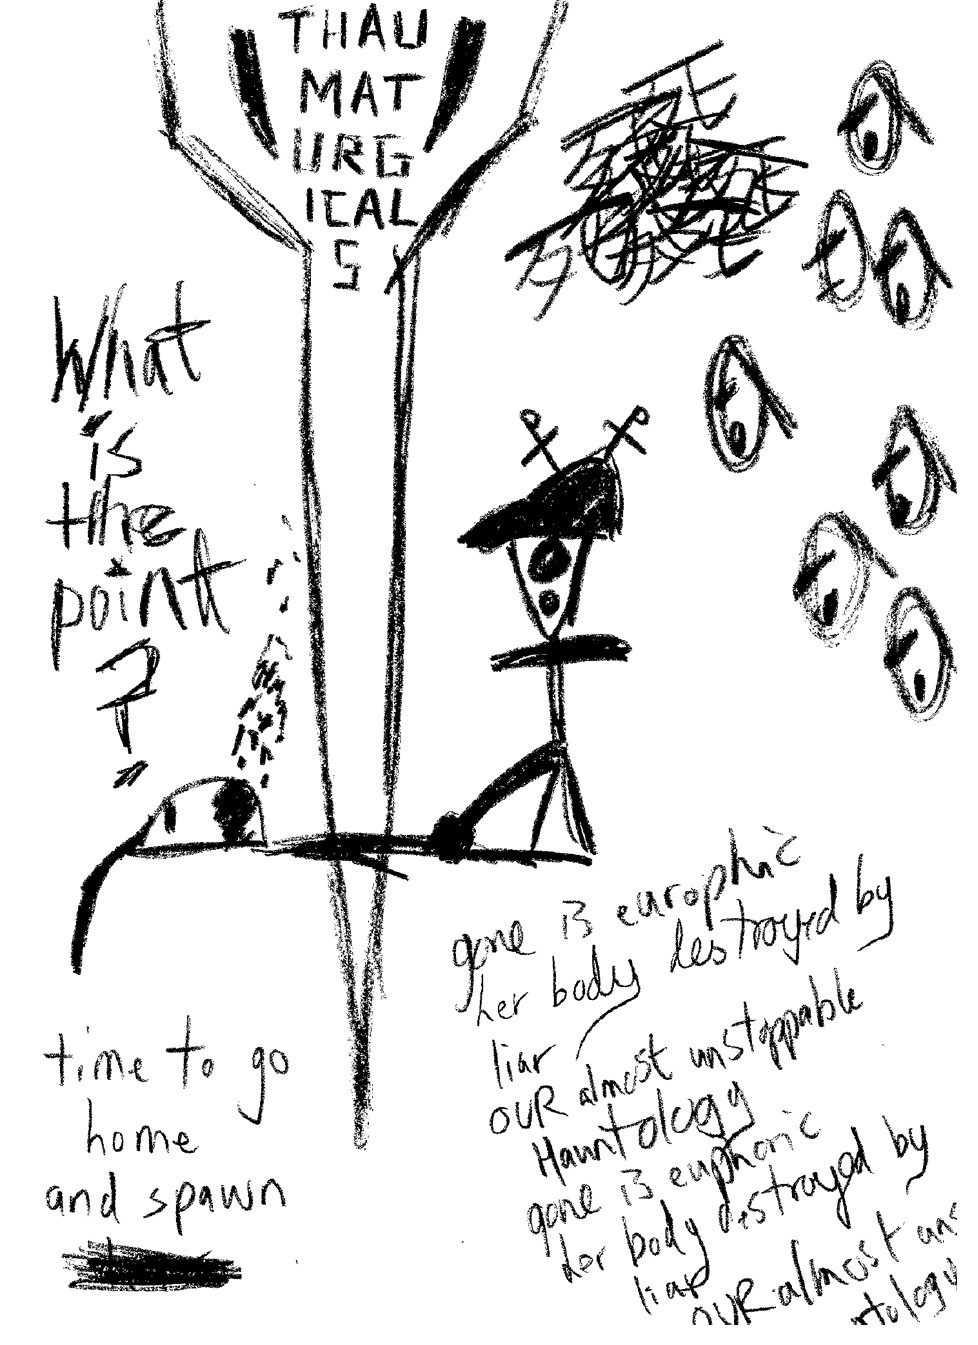 THAU
MAT
URG
ICAL
S
What
is
the
point
?
gone is europhic
her body destroyed by
liar
OUR almost unstoppable
Hauntology
gone is euphoric
her body destroyed by
liar
OUR almost uns
ntology
time to go
home
and spawn